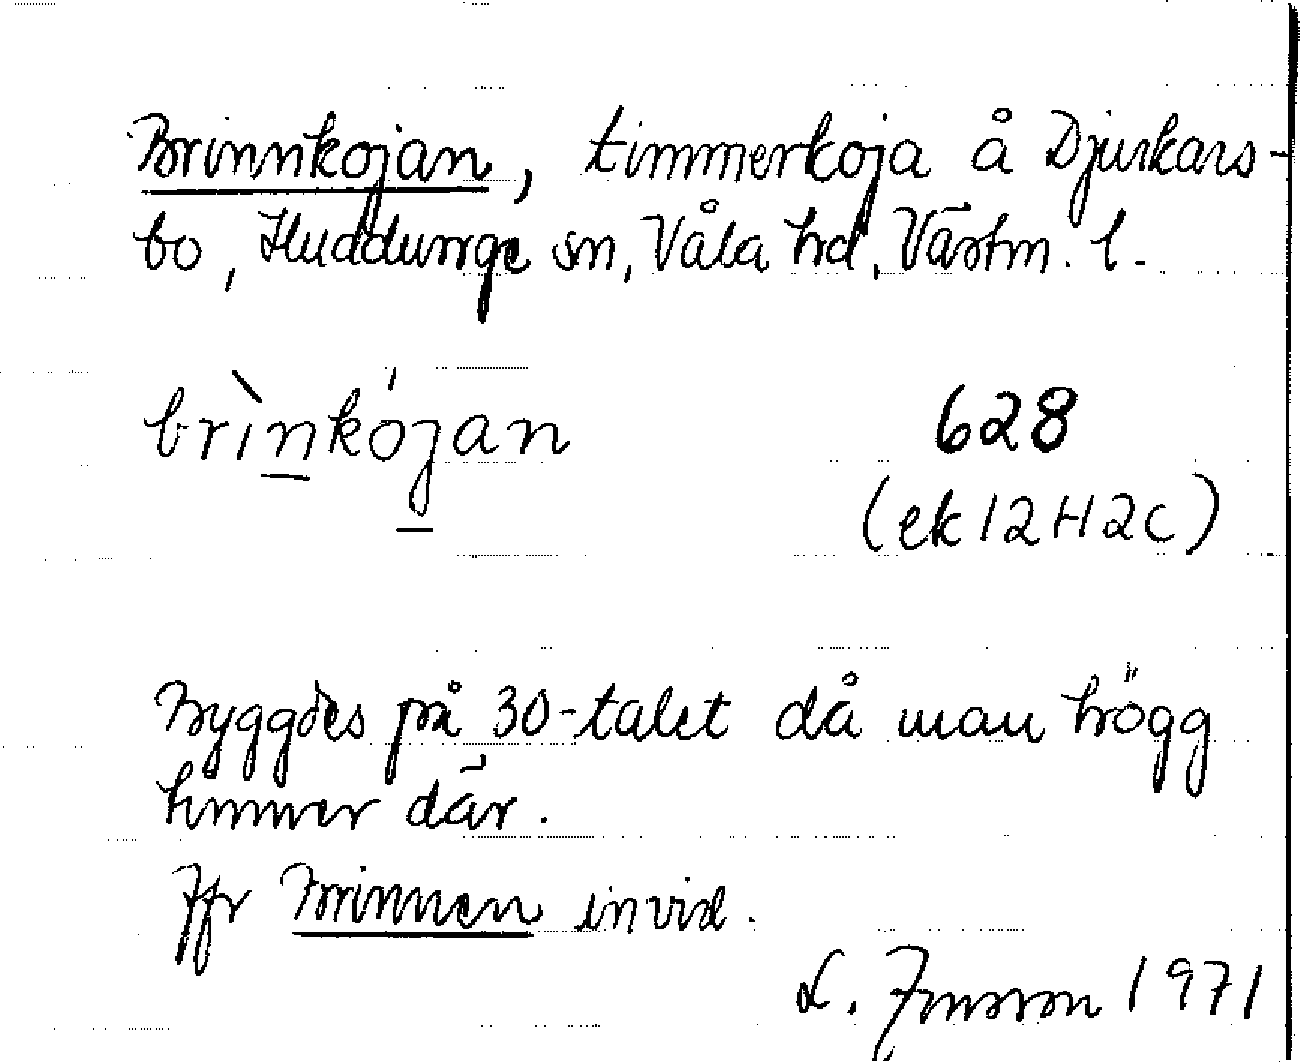 Brinnkojan, timmerkoja å Djurkars-
bo, Huddunge sn, Våla hd, Västm. l.
brìnkójan
628
(ek 12H2c)
Byggdes på 30-talet då man högg
timmer där.
Jfr Brinnen invid.
L. Jonsson 1971